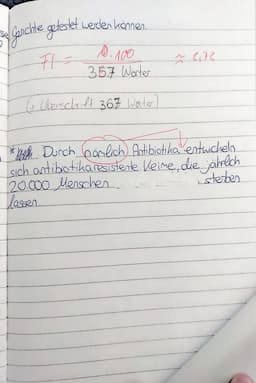 Gerichte getestet werden können.
FI = .100 / 357 Wörter ≈
(+ Überschrift 367 Wörter)
* Durch (nämlich) Antibiotika entwickeln
sich antibiotikaresistente Keime, die jährlich
20.000 Menschen sterben
lassen.